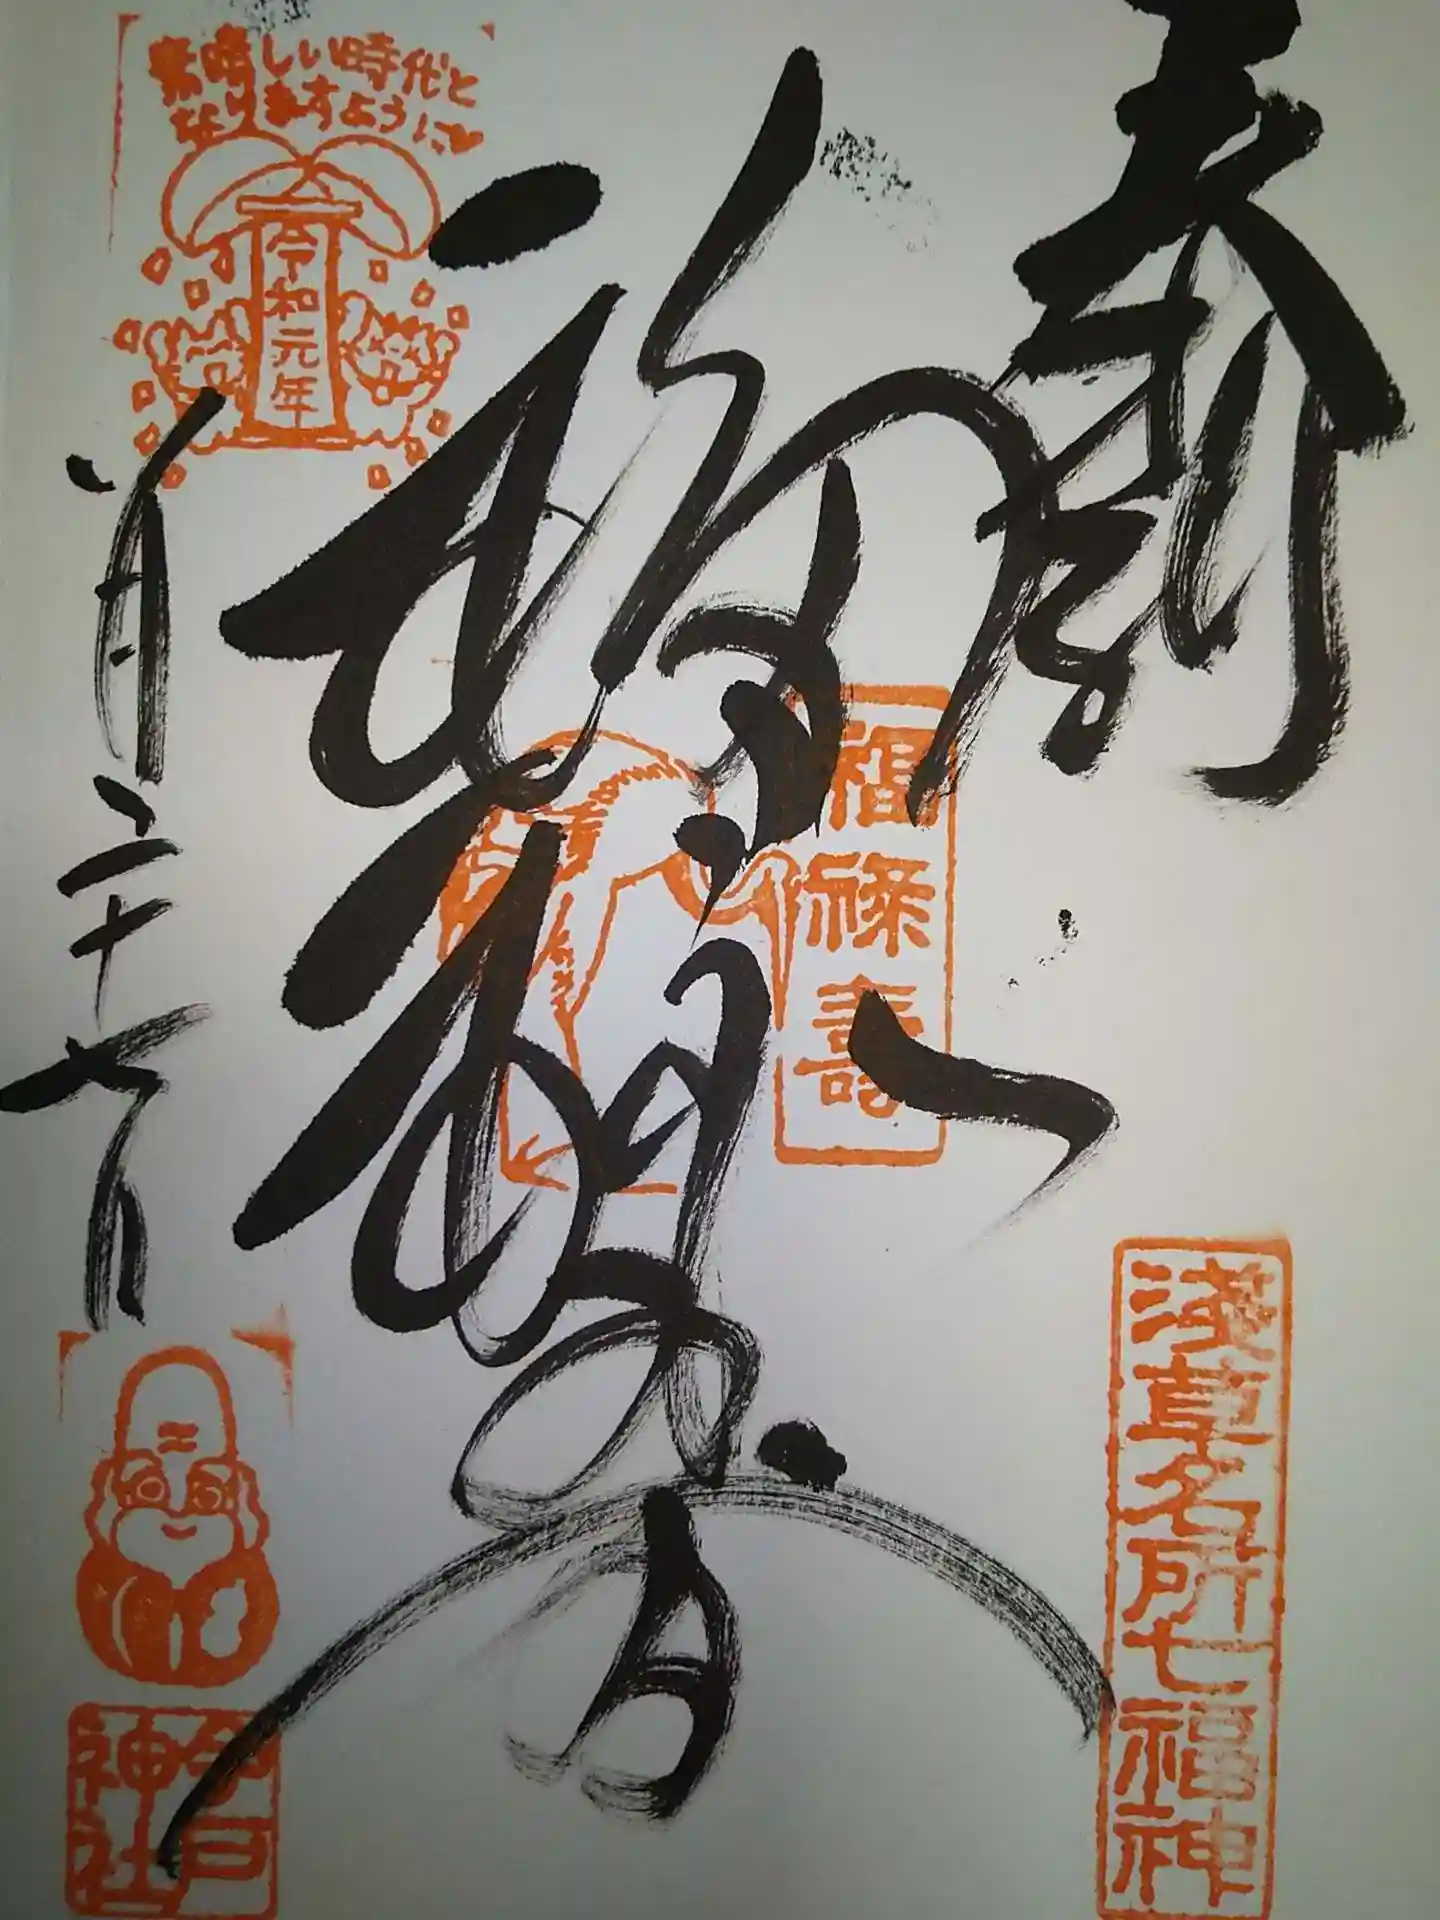 奉拝
福禄寿
浅草名所七福神
福禄寿
素晴しい時代と
なりますように♥
令和元年
二十七日
今戸
神社